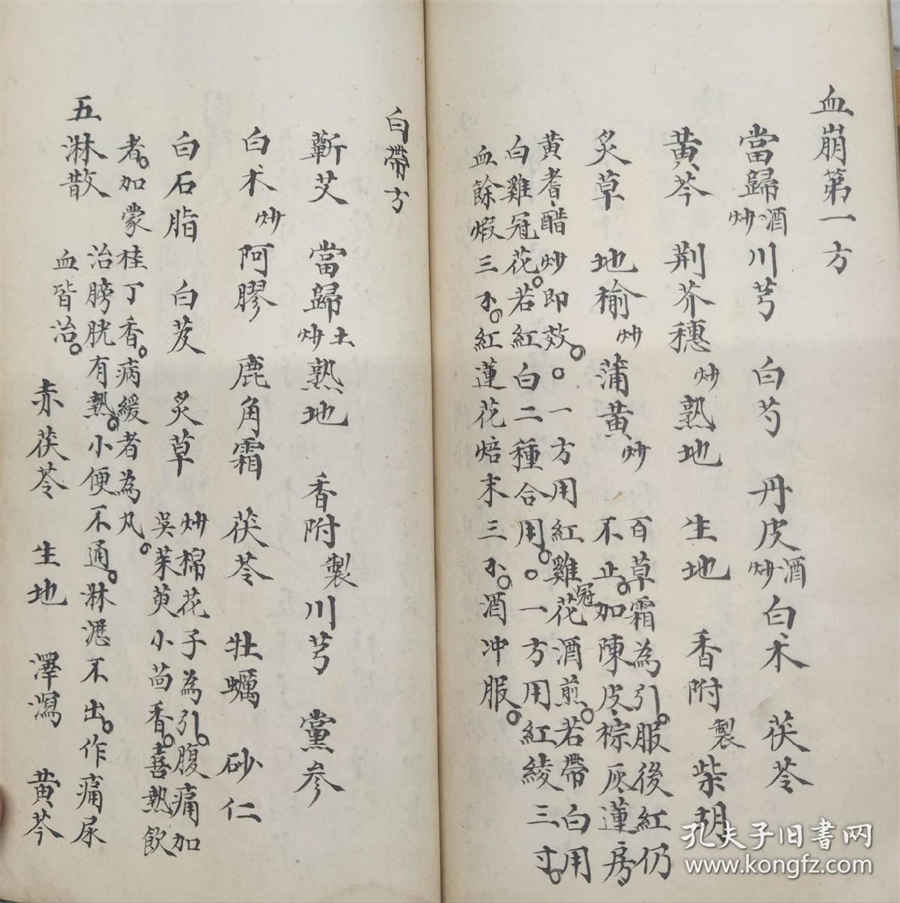 血崩第一方
當歸酒炒 川芎 白芍 丹皮酒炒 白术 茯苓
黄芩 荆芥穗炒 熟地 生地 香附製 柴胡
炙草 地榆炒 蒲黄炒 百草霜為引。服後紅仍
不止。加陳皮棕灰蓮房
黄耆醋炒即效。。一方用紅雞冠花酒煎。若帶白用
白雞冠花。若紅白二種合用。。一方用紅綾三寸。
血餘煅三。紅蓮花焙末三。酒冲服。
白帶方
蘄艾 當歸土炒 熟地 香附製 川芎 黨參
白术炒 阿膠 鹿角霜 茯苓 牡蠣 砂仁
白石脂 白芨 炙草 炒棉花子為引。腹痛加
吳茱萸小茴香。喜熱飲
者。加蒙桂丁香。病緩者為丸。
五淋散 治膀胱有熱。小便不通。淋瀝不出。作痛尿
血皆治。
赤茯苓 生地 澤瀉 黄芩
孔夫子旧书网
www.kongfz.com